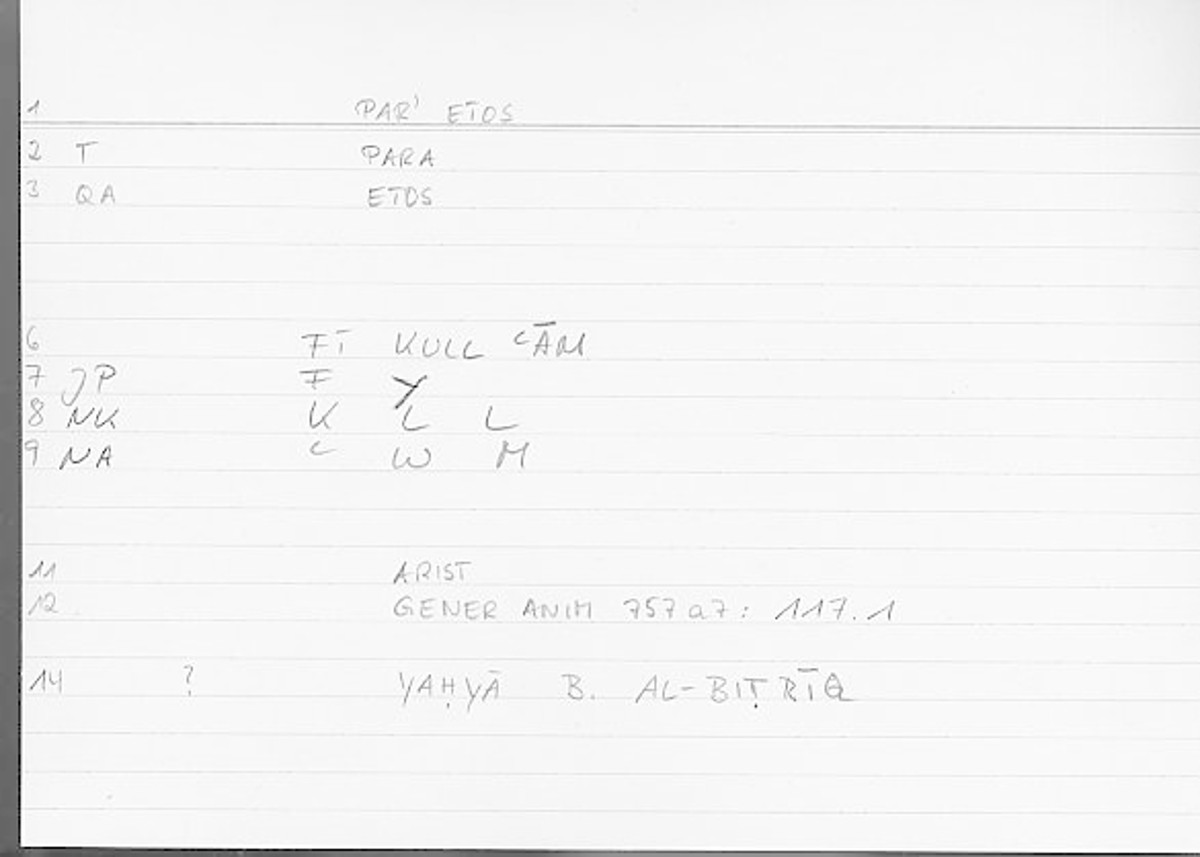 1 PAR' ETOS
2 T PARA
3 QA ETOS
6 FĪ KULL ʿĀM
7 JP F Y
8 NK K L L
9 NA ʿ W M
11 ARIST
12 GENER ANIM 757a7: 117.1
14 ? YAḤYĀ B. AL-BIṬRĪQ